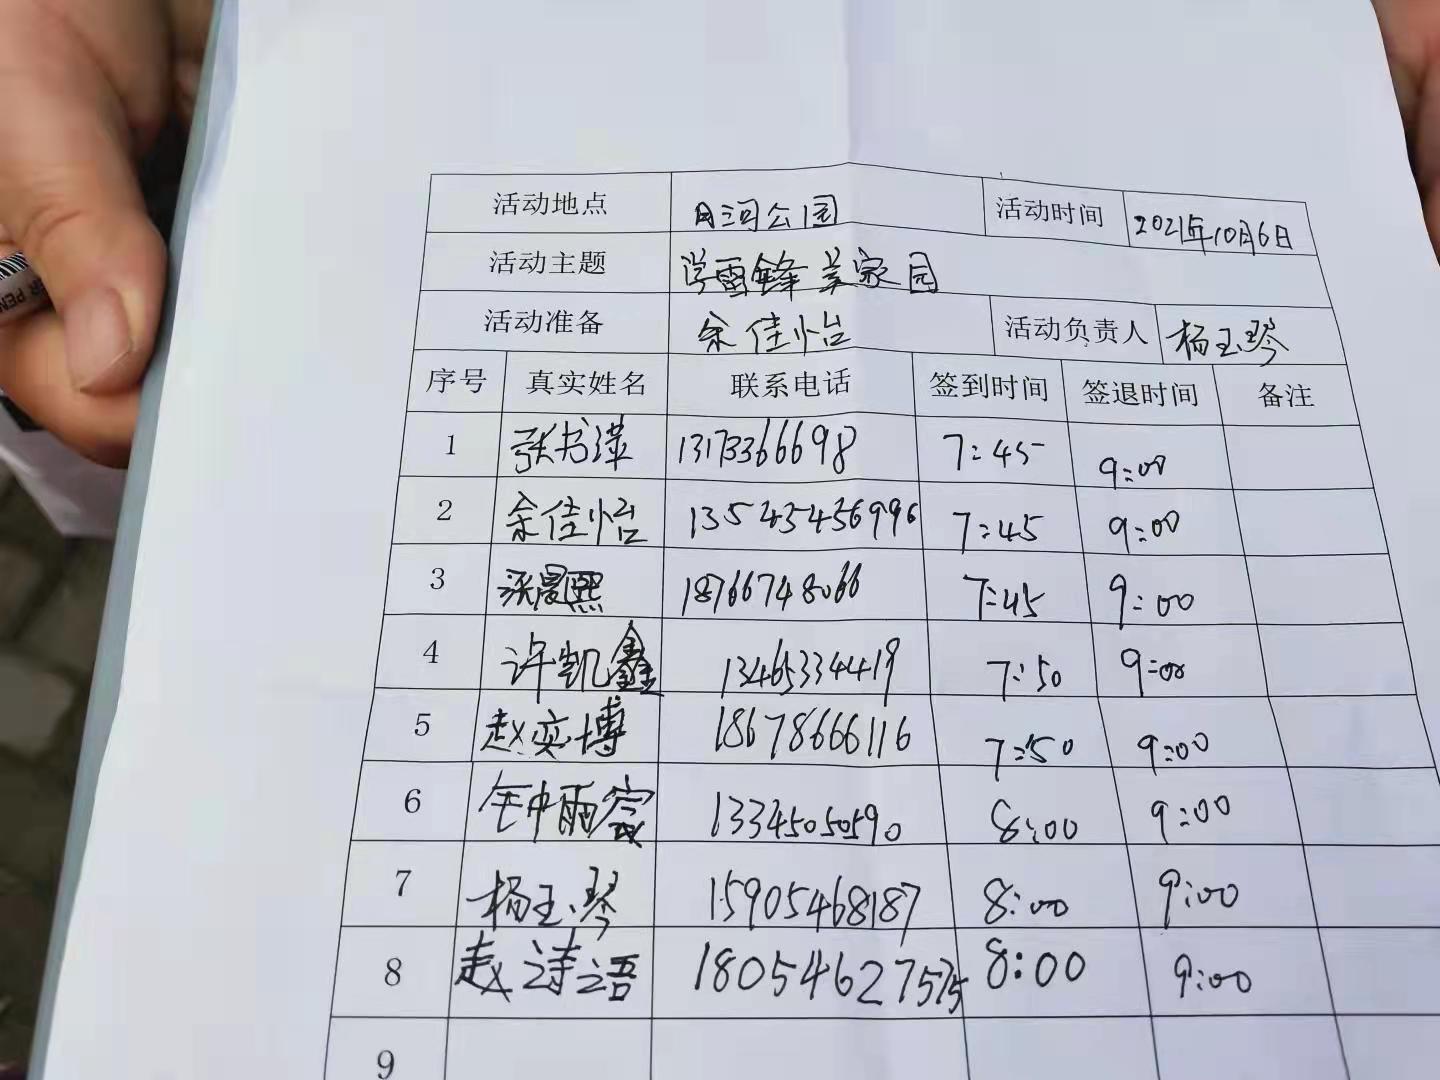 活动地点 月河公园 活动时间 2021年10月6日
活动主题 学雷锋 美家园
活动准备 余佳怡 活动负责人 杨玉琴
序号 真实姓名 联系电话 签到时间 签退时间 备注
1 张书萍 13173366698 7:45 9:00
2 余佳怡 7:45 9:00
3 18766748066 7:45 9:00
4 许凯鑫 13465334419 7:50 9:00
5 赵奕博 18678666116 7:50 9:00
6 13345050590 8:00 9:00
7 杨玉琴 15905468187 8:00 9:00
8 赵诗语 8:00 9:00
9